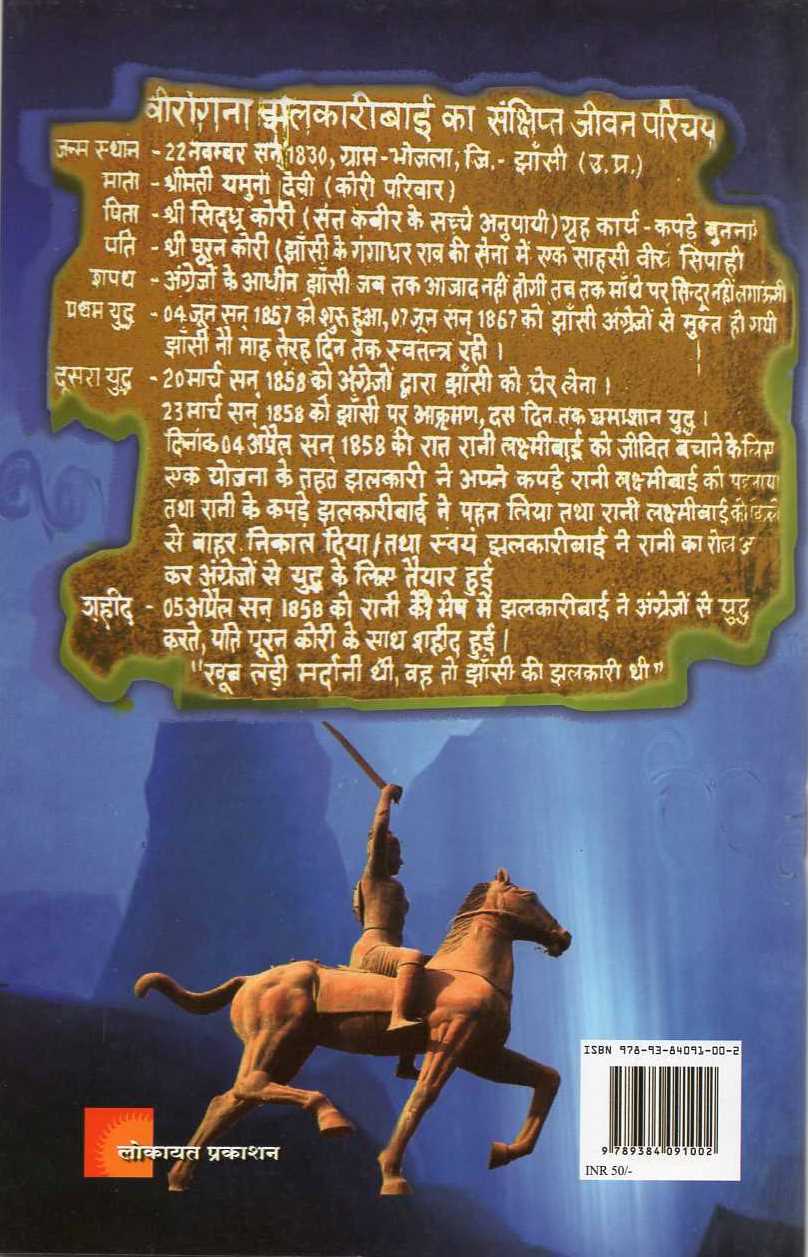 वीरांगना झलकारीबाई का संक्षिप्त जीवन परिचय
जन्म स्थान - 22 नवम्बर सन् 1830, ग्राम - भोजला, जि.- झाँसी (उ.प्र.)
माता - श्रीमती यमुना देवी (कोरी परिवार)
पिता - श्री सिदधू कोरी (संत कबीर के सच्चे अनुयायी) गृह कार्य - कपड़े बुनना
पति - श्री पूरन कोरी (झाँसी के गंगाधर राव की सेना में एक साहसी वीर सिपाही
शपथ - अंग्रेजों के आधीन झाँसी जब तक आजाद नहीं होगी तब तक माँथे पर सिन्दूर नहीं लगाऊंगी
प्रथम युद्ध - 04 जून सन् 1857 को शुरू हुआ, 07 जून सन् 1857 को झाँसी अंग्रेजों से मुक्त हो गयी
झाँसी नौ माह तेरह दिन तक स्वतन्त्र रही ।
दूसरा युद्ध - 20 मार्च सन् 1858 को अंग्रेजों द्वारा झाँसी को घेर लेना ।
23 मार्च सन् 1858 को झाँसी पर आक्रमण, दस दिन तक घमाशान युद्ध ।
दिनांक 04 अप्रैल सन् 1858 की रात रानी लक्ष्मीबाई को जीवित बचाने के लिए
एक योजना के तहत झलकारी ने अपने कपड़े रानी लक्ष्मीबाई को पहनाया
तथा रानी के कपड़े झलकारीबाई ने पहन लिया तथा रानी लक्ष्मीबाई को किले
से बाहर निकाल दिया । तथा स्वयं झलकारीबाई ने रानी का रोल अ
कर अंग्रेजों से युद्ध के लिए तैयार हुई
शहीद - 05 अप्रैल सन् 1858 को रानी के भेष में झलकारीबाई ने अंग्रेजों से युद्ध
करते, पति पूरन कोरी के साथ शहीद हुई ।
"खूब लड़ी मर्दानी थी, वह तो झाँसी की झलकारी थी"
ISBN 978-93-84091-00-2
9 789384 091002
INR 50/-
लोकायत प्रकाशन